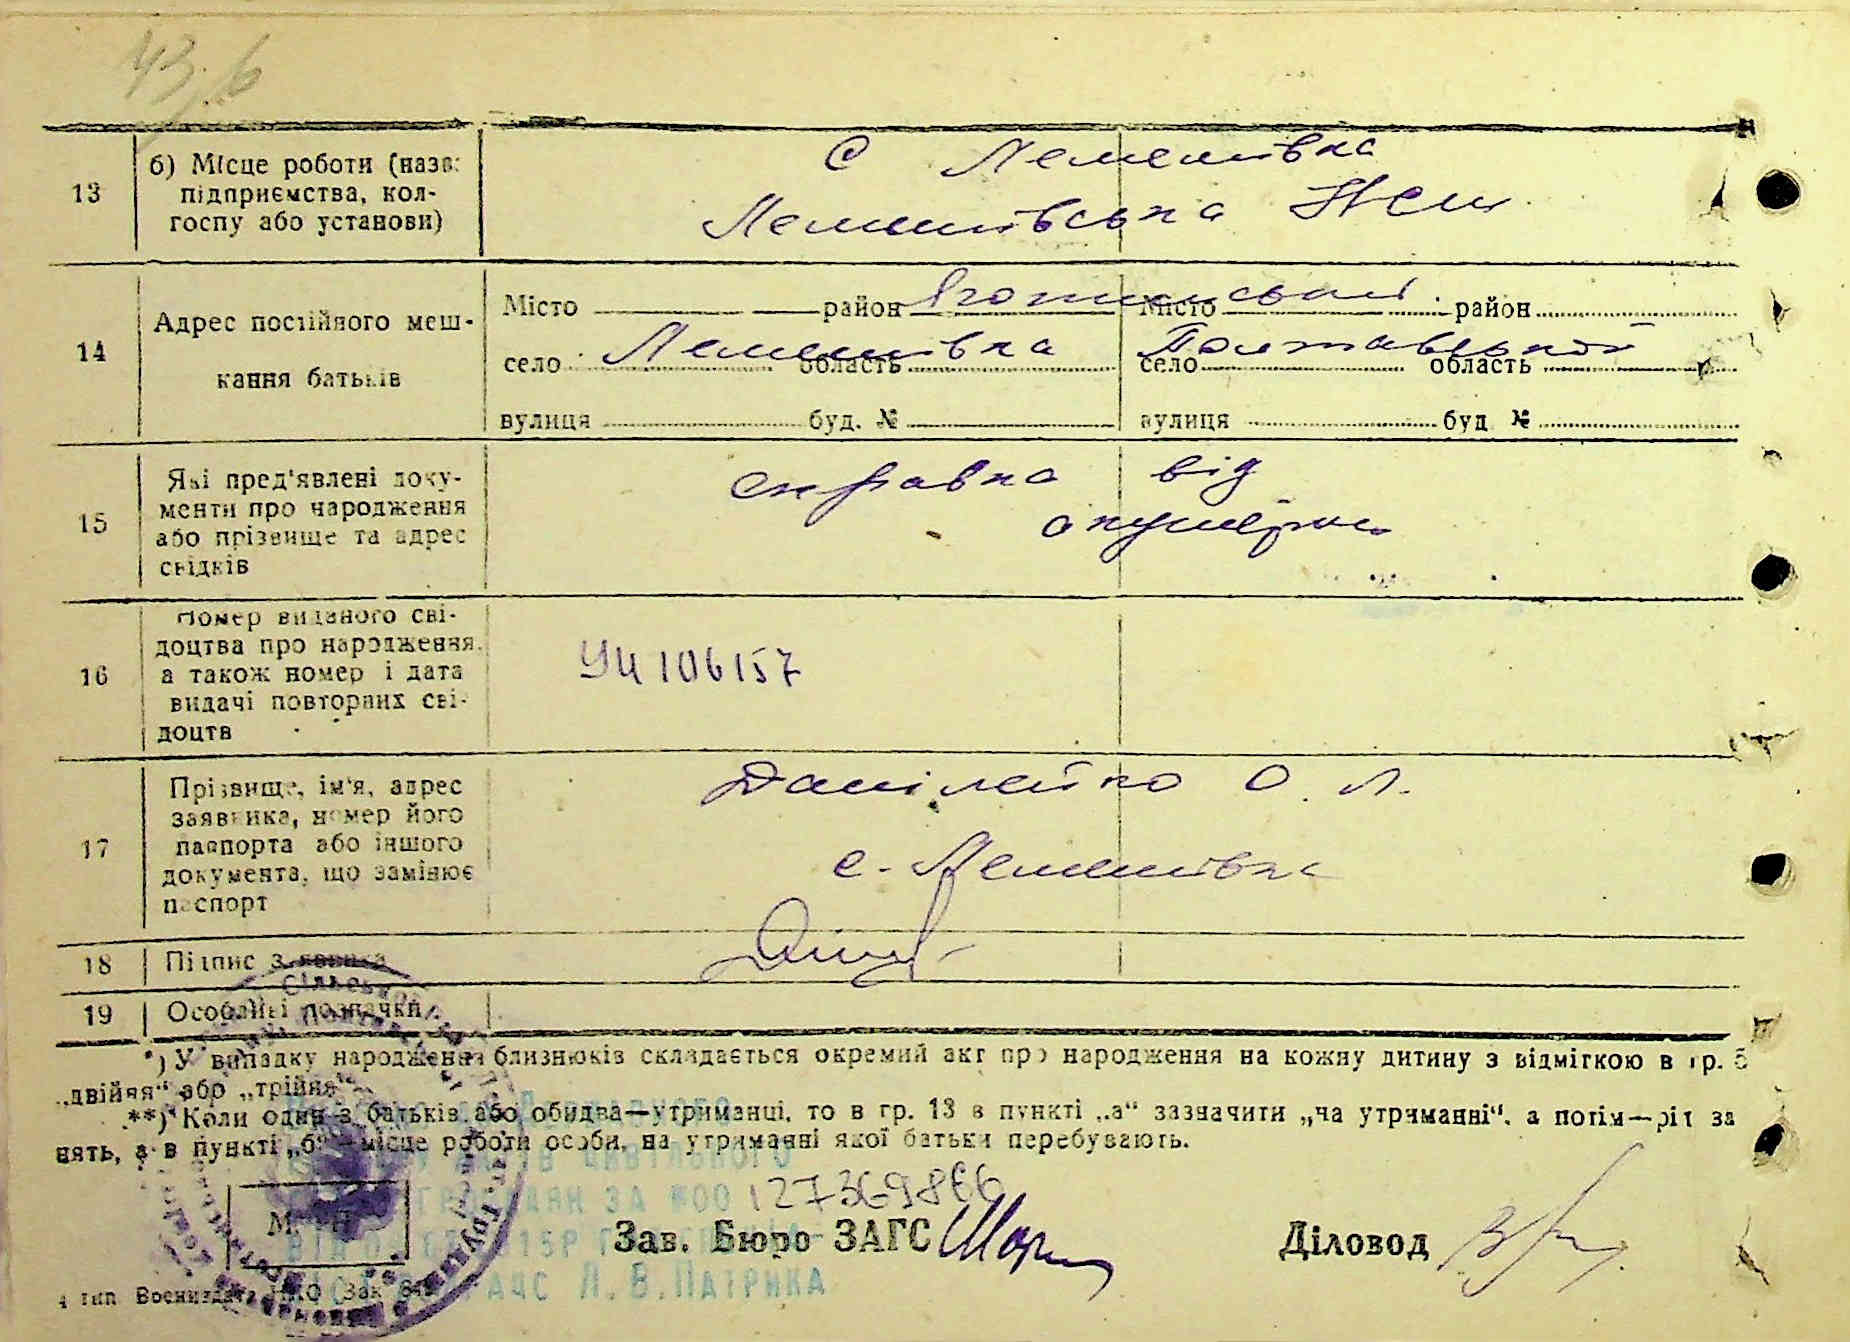 43 б
13
б) Місце роботи (назва
підприємства, кол-
госпу або установи)
С Лемешівка
Лемешівська НСШ
14
Адрес постійного меш-
кання батьків
Місто район Яготинський Місто район
село Лемешівка область Полтавської село область
вулиця буд. № вулиця буд №
15
Які пред'явлені доку-
менти про народження
або прізвище та адрес
свідків
справка від
акушерки
16
Номер виданого сві-
доцтва про народження,
а також номер і дата
видачі повторних сві-
доцтв
УЦ 106157
17
Прізвище, ім'я, адрес
заявника, номер його
паспорта або іншого
документа, що замінює
паспорт
Данілейко О. Л.
с. Лемешівка
18 Підпис заявника
19 Особливі позначки
*) У випадку народження близнюків складається окремий акт про народження на кожну дитину з відміткою в гр. 5
„двійня“ або „трійня“
**) Коли один з батьків або обидва—утриманці, то в гр. 13 в пункті „а“ зазначити „на утриманні“, а потім—рід за
нять, а в пункті „б“—місце роботи особи, на утриманні якої батьки перебувають.
ЦИВІЛЬНОГО
ГРОМАДЯН ЗА №00127369866
М. П.
Зав. Бюро ЗАГС
Діловод
РАЦС Л.В.ПАТРИКА
4 тип Воениздата НКО Зак